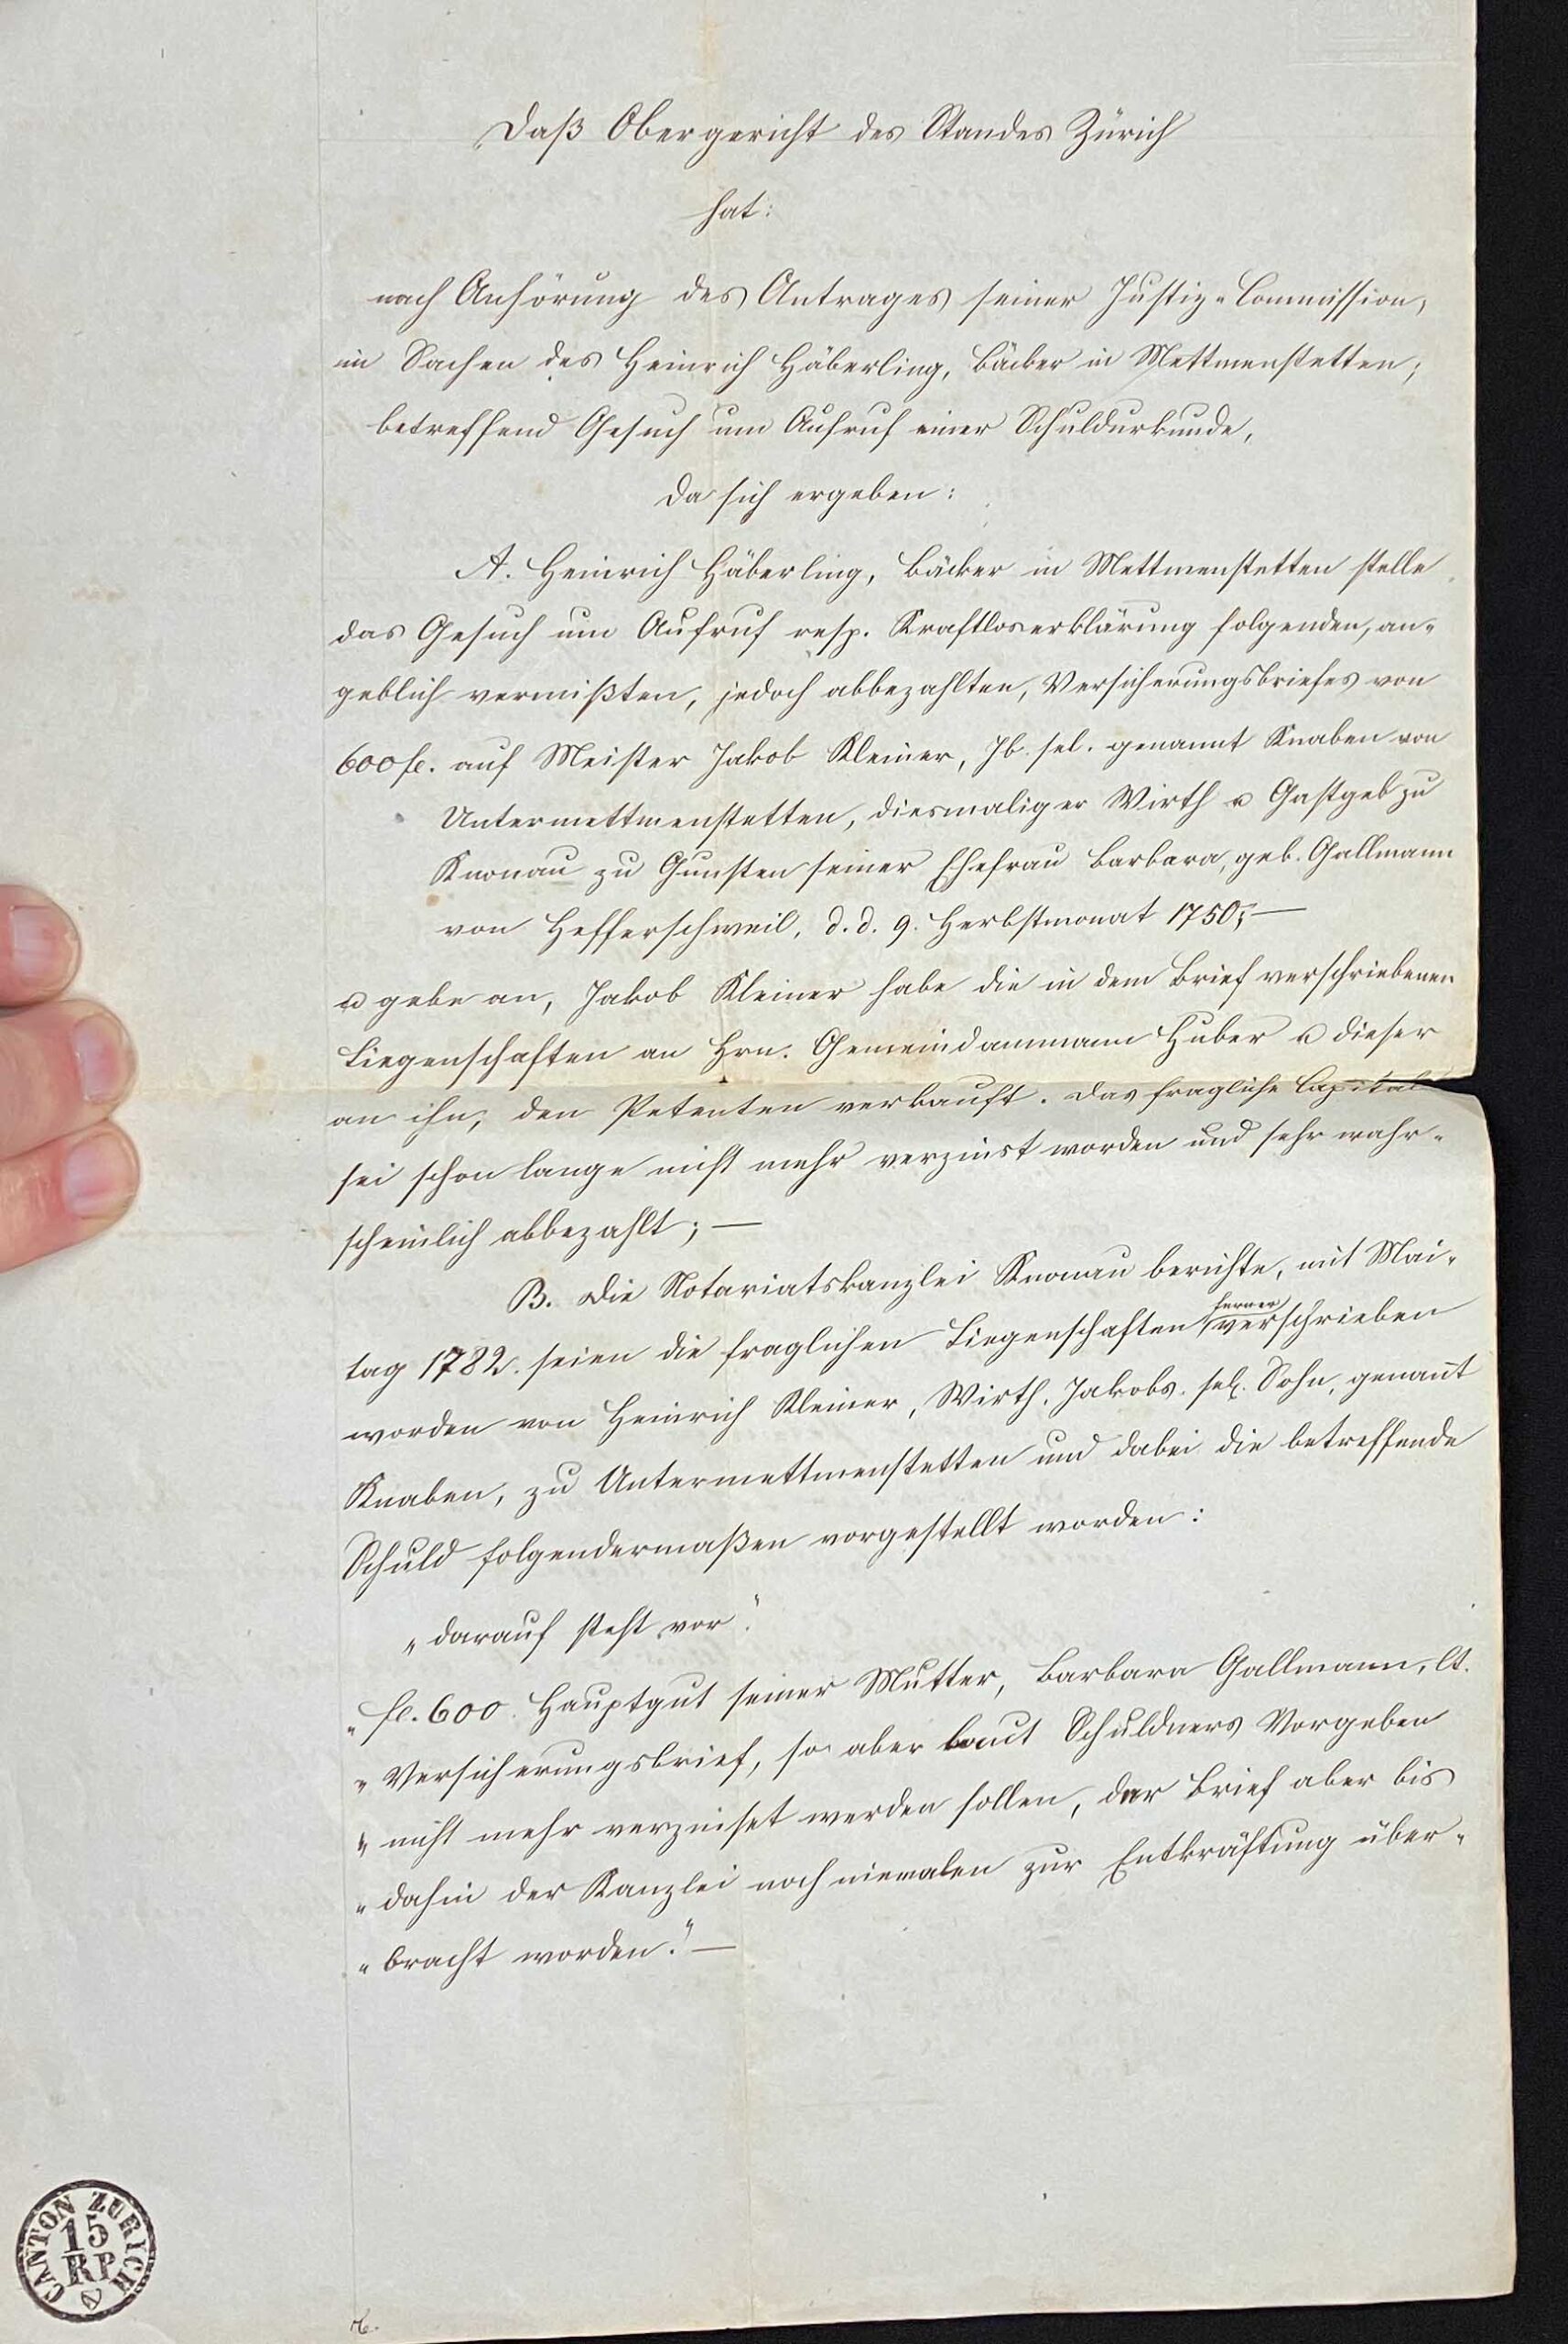 Daß Obergericht des Standes Zürich
hat:
nach Anhörung des Antrages seiner Justiz-Commission,
in Sachen des Heinrich Häberling, Bäcker in Mettmenstetten;
betreffend Gesuch um Aufruf einer Schuldurkunde,
da sich ergeben:
A. Heinrich Häberling, Bäcker in Mettmenstetten stelle
das Gesuch um Aufruf resp. Kraftloserklärung folgenden, an-
geblich vermißten, jedoch abbezahlten, Versicherungsbriefes von
600 fl. auf Meister Jakob Kleiner, Jb. sel. genannt Knaben von
Untermettmenstetten, diesmaliger Wirth u Gastgeb zu
Knonau zu Gunsten seiner Ehefrau Barbara, geb. Gallmann
von Hefferschweil, d. d. 9. Herbstmonat 1750; —
u gebe an, Jakob Kleiner habe die in dem Brief verschriebenen
Liegenschaften an Hrn. Gemeindammann Huber u dieser
an ihn, den Petenten verkauft. Das fragliche Capital
sei schon lange nicht mehr verzinst worden und sehr wahr-
scheinlich abbezahlt; —
B. Die Notariatskanzlei Knonau berichte, mit Mai-
tag 1782. seien die fraglichen Liegenschaften ferner verschrieben
worden von Heinrich Kleiner, Wirth, Jakobs. sel. Sohn, genannt
Knaben, zu Untermettmenstetten und dabei die betreffende
Schuld folgendermaßen vorgestellt worden:
„darauf steht vor:"
„fl. 600. Hauptgut seiner Mutter, Barbara Gallmann, lt.
„Versicherungsbrief, so aber laut Schuldners Vorgeben
„nicht mehr verzinset werden sollen, der Brief aber bis
„dahin der Kanzlei noch niemalen zur Entkräftung über-
„bracht worden." —
CANTON ZÜRICH
15
RP.